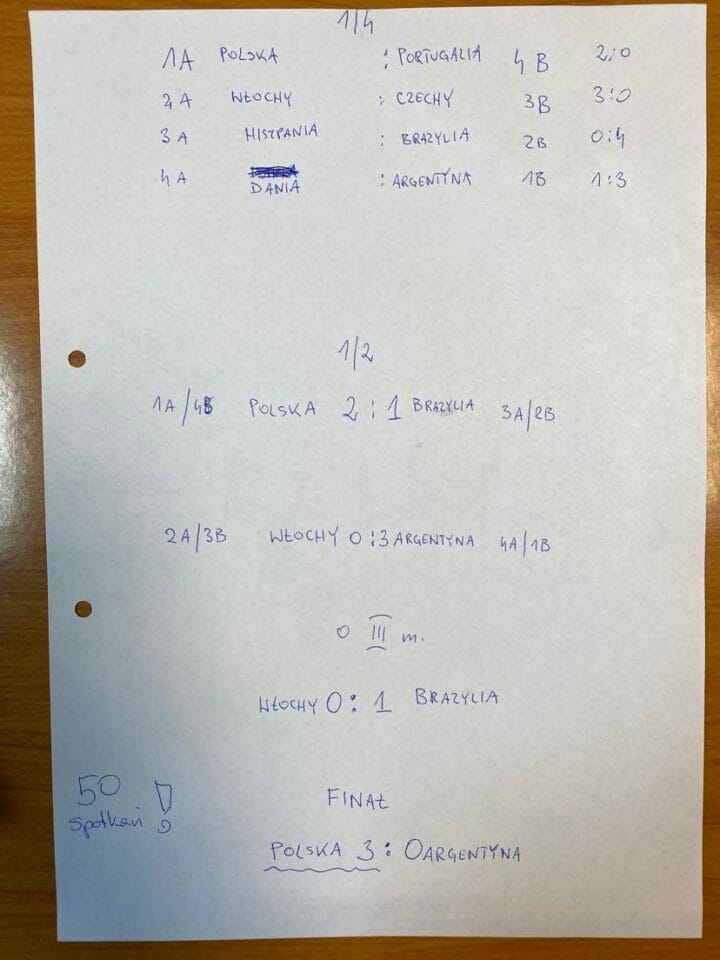 1/4
1A POLSKA : PORTUGALIA 4B 2:0
2A WŁOCHY : CZECHY 3B 3:0
3A HISZPANIA : BRAZYLIA 2B 0:4
4A DANIA : ARGENTYNA 1B 1:3
1/2
1A/4B POLSKA 2:1 BRAZYLIA 3A/2B
2A/3B WŁOCHY 0:3 ARGENTYNA 4A/1B
O III m.
WŁOCHY 0:1 BRAZYLIA
50 spotkań !
FINAŁ
POLSKA 3:0 ARGENTYNA